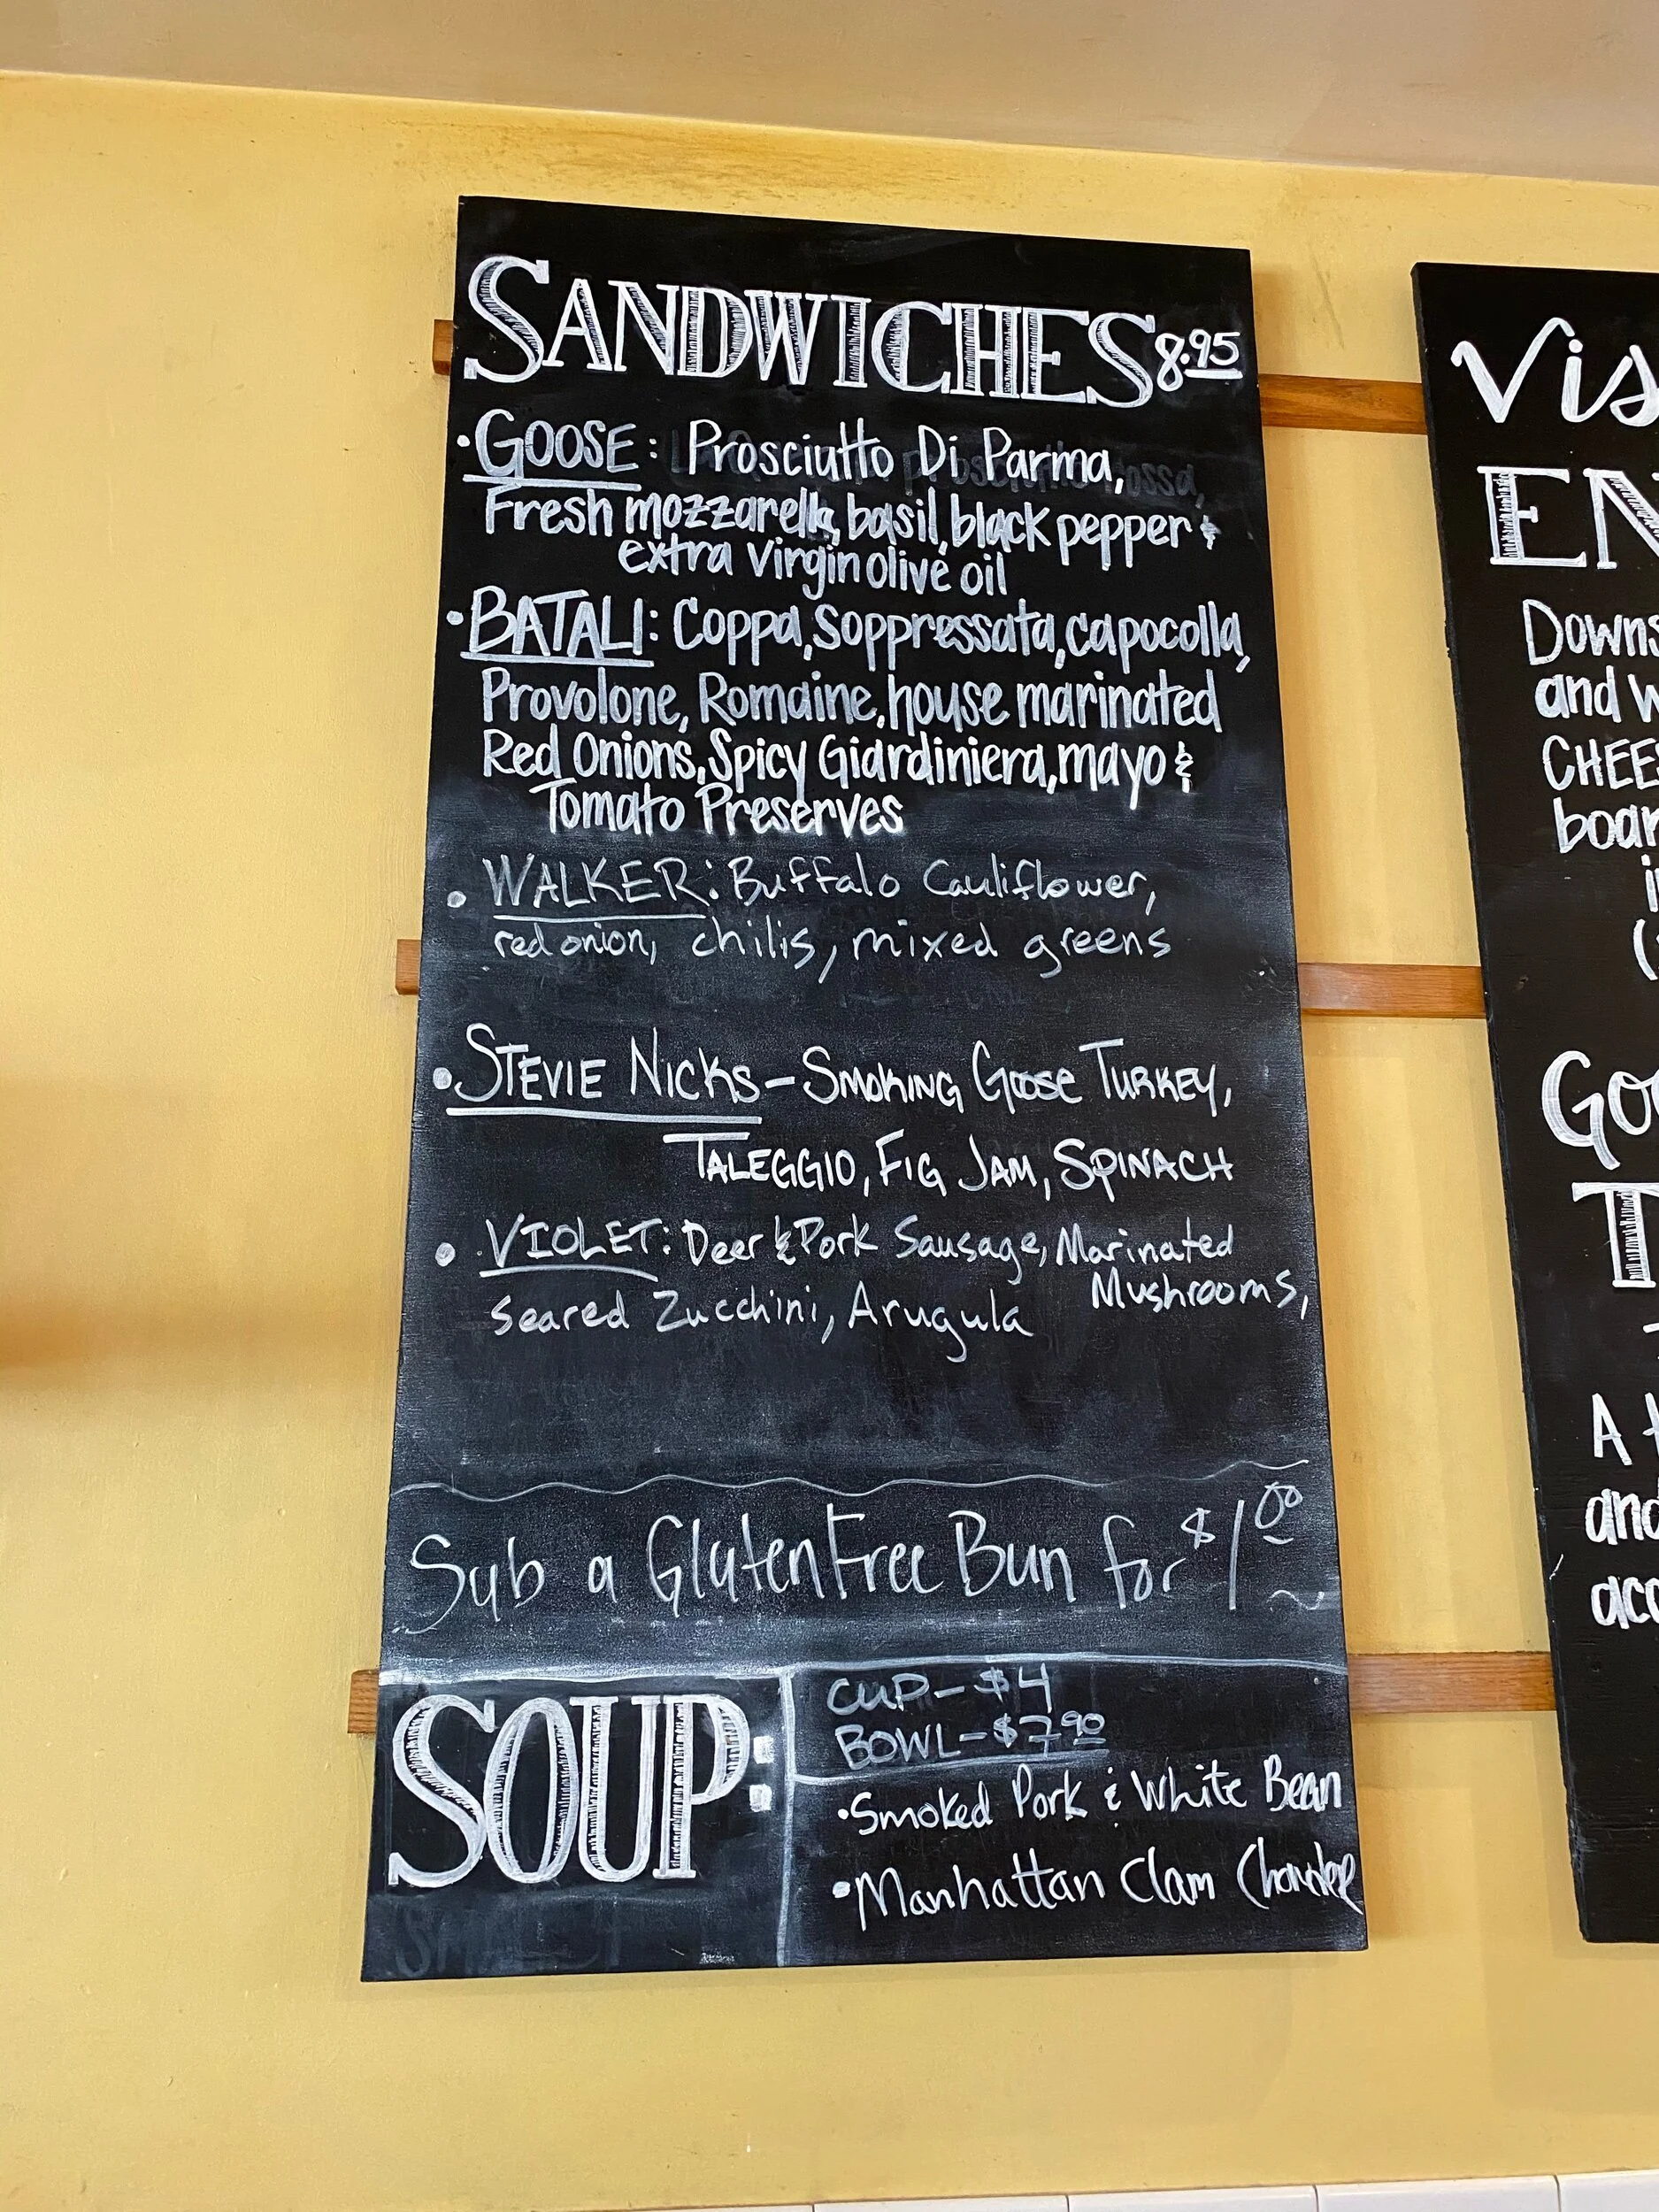 SANDWICHES 8.95
• GOOSE: Prosciutto Di Parma,
Fresh mozzarella, basil, black pepper &
extra virgin olive oil
• BATALI: Coppa, Soppressata, capocolla,
Provolone, Romaine, house marinated
Red Onions, Spicy Giardiniera, mayo &
Tomato Preserves
• WALKER: Buffalo Cauliflower,
red onion, chilis, mixed greens
• STEVIE NICKS – SMOKING GOOSE TURKEY,
TALEGGIO, FIG JAM, SPINACH
• VIOLET: Deer & Pork Sausage, Marinated
Mushrooms,
seared Zucchini, Arugula
Sub a Gluten Free Bun for $1.00
SOUP:
CUP – $4
BOWL – $7.90
• Smoked Pork & White Bean
• Manhattan Clam Chowder
Vis
EN
Downs
and w
CHEES
boar
i
(
Goo
T
A t
and
acc